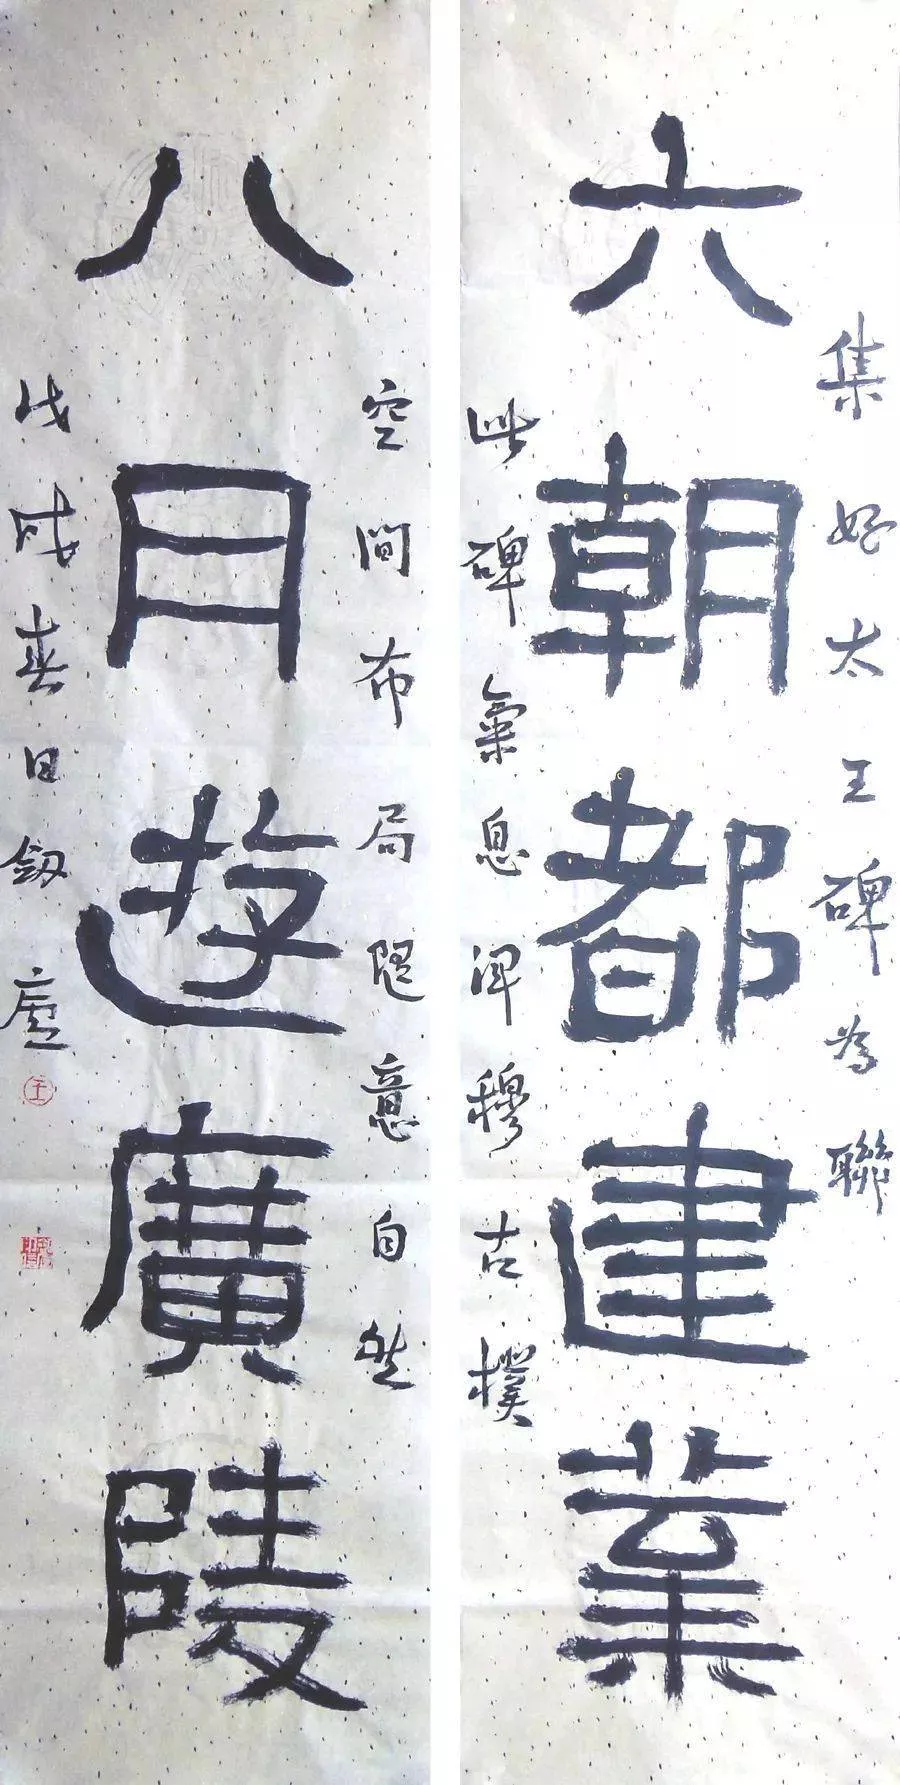 集好太王碑為聯
六朝都建業
此碑氣息渾穆古樸
空間布局隨意自然
八月遊廣陵
戊戌春日釼廬